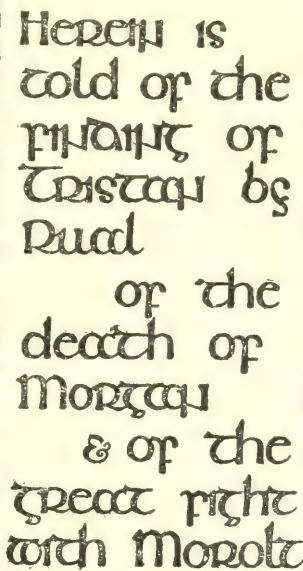 Herein is
told of the
finding of
Tristan by
Rual
of the
death of
Morgan
& of the
great fight
with Morolt